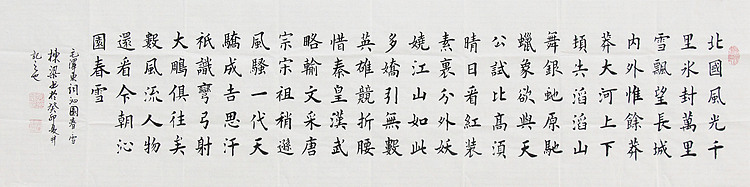 北國風光千
里氷封萬里
雪飄望長城
内外惟餘莽
莽大河上下
頓失滔滔山
舞銀蛇原馳
蠟象欲與天
公試比高須
晴日看紅裝
素裹分外妖
嬈江山如此
多嬌引無數
英雄競折腰
惜秦皇漢武
略輸文采唐
宗宋祖稍遜
風騷一代天
驕成吉思汗
衹識彎弓射
大鵰俱往矣
數風流人物
還看今朝沁
園春雪
毛澤東詞沁園春雪
棟梁書於癸卯夏月